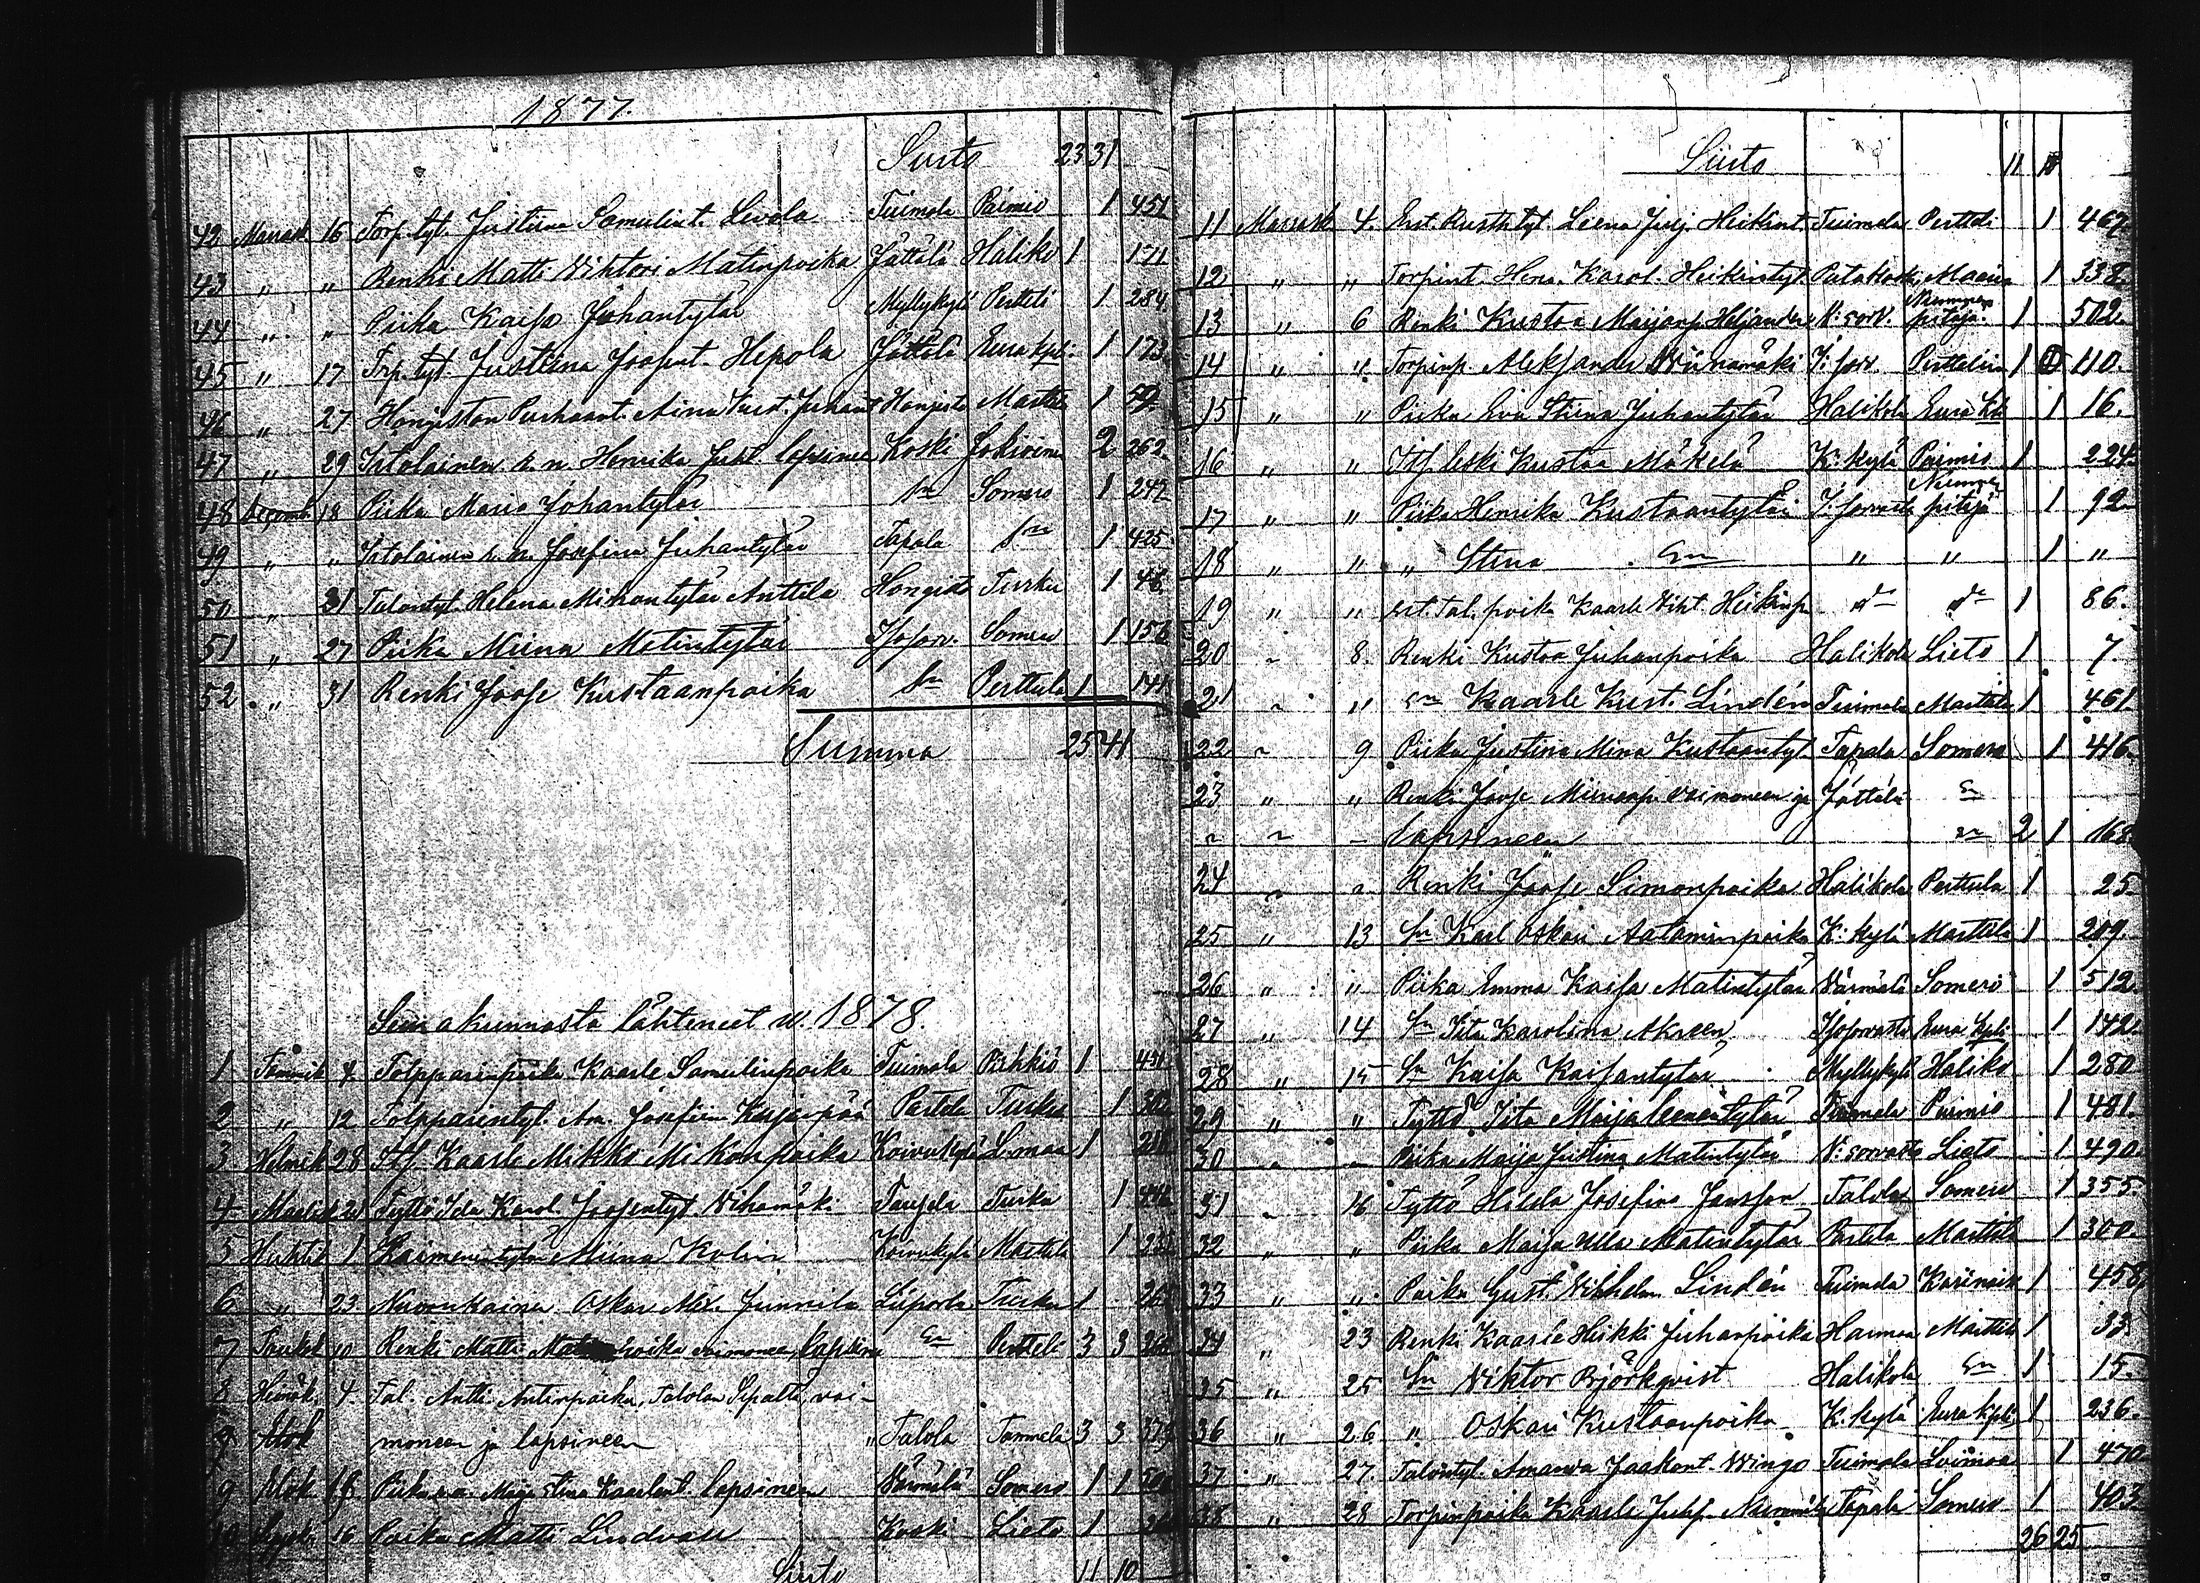 1877.
Siirto 23 31
42 Marrask 16 Torp. tyt. Justiina Samulint. Levola Tuimala Paimio 1 451
43 " " Renki Matti Wihtori Matinpoika Jättälä Haliko 1 171
44 " " Piika Kaisa Juhantytär Myllykylä Pertteli 1 284
45 " 17 Trp. tyt. Justiina Joosent. Hepola Jättälä Eura kpli 1 173
46 " 27 Hongiston Purhaant. Aina Kust. Juhant Hongisto Marttila 1 52
47 " 29 Itsolainen n. Henrika Just. lapsinee Koski Jokioinen 2 262
48 Decemb 18 Piika Maria Johantytär Sn Somero 1 249
49 " " Itsolainen n. Josefina Juhantytär Tapala Sn 1 425
50 " 31 Talontyt. Helena Mikontytär Anttila Hongisto Turku 1 48
51 " 27 Piika Miina Matintytär Isosorv. Somero 1 156
52 " 31 Renki Joose Kustaanpoika Sn Perttula 1 141
Summa 25 41
Seurakunnasta lähteneet w. 1878.
1 Tammik 4 Tolpparinpoika Kaarle Samulinpoika Tuimala Piikkiö 1 451
2 " 12 Tolpparintyt. Am. Josefiina Kujanpää Partela Turku 1
3 Helmik 28 Itsf. Kaarle Mikko Mikonpoika Koivukylä Loimaa 1
4 Maalisk 20 Tyttö Ida Karol. Joosentyt Wihamäki Turku 1
5 Huhtik 1 Miina Kolin Koivukylä Marttila 1
6 " 23 Nuorukainen Oskar Alex. Junnila Liiporla Turku 1 26
7 Toukok 10 Renki Matti poika vaimoneen, lapsineen Sn Pertteli 3 3
8 Heinäk. 4 Tal. Antti Antinpoika, Talolan Sepaltta, vai-
9 Elok moneen ja lapsineen " Talola Tammela 3 3
9 Elok 19 Piika Maja Stina Kaarlent. lapsineen Värmälä Somero 1 1
10 Syysk 16 Poika Matti Lindvall Koski Lieto 1
Siirto 11 10
Siirto 11 10
11 Marrask 4. Ent. Rusth.tyt. Leena Julj. Heikint. Tuimala Pertteli 1 467
12 " " Torpint. Hena Karol. Heikintyt. Patakoski Maaria 1 338
13 " 6 Renki Kustaa Maijanp. Heljander V: sorv. Nummen pitäjä 1 502.
14 " " Torpinp Aleksander Wiinamäki I: sorv. Perttelin 1 110.
15 " " Piika Eva Stiina Juhantytär Halikola Eura kpli 1 16.
16 " " Itsf. leski Kustaa Mäkelä K: kylä Paimio 1 224
17 " " Piika Henrika Kustaantytär I: sorvasto Nummen pitäjä 1 92
18 " " " Stina Sn " " 1 "
19 " " ent. Tal. poika Kaarle Wiht. Heikinp Sn Sn 1 86.
20 " 8. Renki Kustaa Juhanpoika Halikola Lieto 1 7.
21 " " Sn Kaarle Kust. Lindén Tuimala Marttila 1 461.
22 " 9 Piika Justina Mina Kustaantyt Tapala Somero 1 416
23 " " Renki Joose Miinanp. vaimoneen ja Jättälä Sn
" " " lapsineen Sn 2 1 168
24 " " Renki Joose Simonpoika Halikola Perttula 1 25
25 " 13 Sn Karl Oskari Aataminpoika K: kylä Marttila 1 209.
26 " " Piika Emma Kaisa Matintytär Värmälä Somero 1 512
27 " 14 Sn Iita Karolina Akreen Isosorvasto Eura kpli 1 142.
28 " 15 Sn Kaisa Kaisantytär Myllykylä Haliko 1 280
29 " " Tyttö Iita Maija Leenantytär Tuimala Paimio 1 481.
30 " " Piika Maija Justina Matintytär V: sorvasto Lieto 1 490.
31 " 16 Tyttö Hilda Josefina Jansson Talola Somero 1 355.
32 " " Piika Maija Ulla Matintytär Partela Marttila 1 300.
33 " " Poika Gust. Wilhelm Lindén Tuimala Karinais 1 458
34 " 23 Renki Kaarle Heikki Juhanpoika Harmaa Marttila 1 33
35 " 25 Sn Viktor Björkqvist Halikola Sn 1 15.
36 " 26 " Oskari Kustaanpoika K. kylä Eura kpli 1 236.
37 " 27. Talontyt. Amanda Jaakont. Wingo Tuimala Loimaa 1 470
38 " 28 Torpinpoika Kaarle Juhp. Nummila Tapala Somero 1 403
26 25